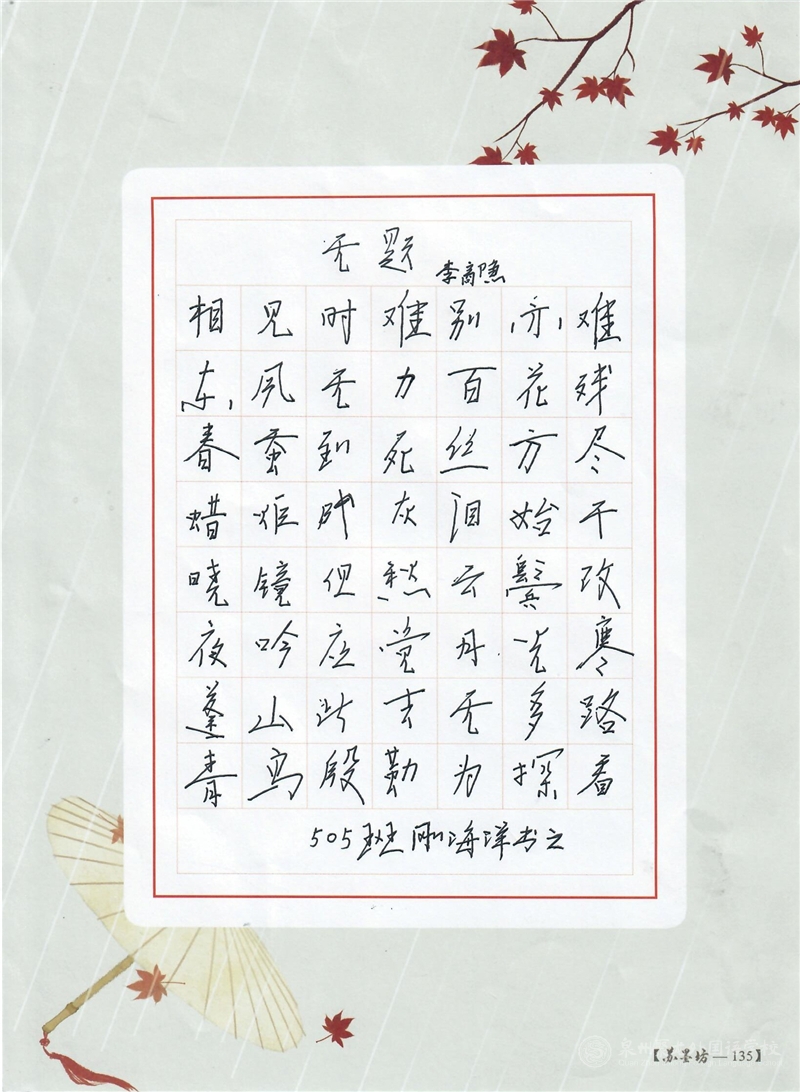 无题
李商隐
相见时难别亦难
东风无力百花残
春蚕到死丝方尽
蜡炬成灰泪始干
晓镜但愁云鬓改
夜吟应觉月光寒
蓬山此去无多路
青鸟殷勤为探看
505班刚海洋书之
【苏墨坊—135】